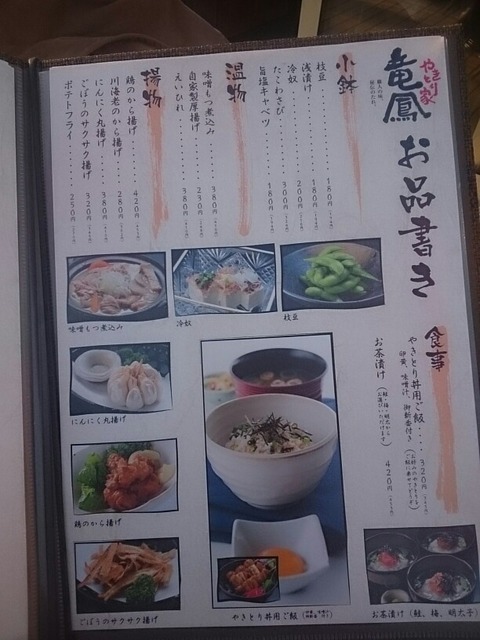 やきとり家
竜鳳
お品書き
小鉢
枝豆・・・・・・・・・180円
浅漬け・・・・・・・・180円
冷奴・・・・・・・・・200円
たこわさび・・・・・・300円
旨塩キャベツ・・・・・180円
温物
味噌もつ煮込み・・・・380円
自家製厚揚げ・・・・・230円
えいひれ・・・・・・・380円
揚物
鶏のから揚げ・・・・・420円
川海老のから揚げ・・・280円
にんにく丸揚げ・・・・380円
ごぼうのサクサク揚げ・320円
ポテトフライ・・・・・250円
食事
やきとり丼用ご飯・・・・320円
卵黄、味噌汁、御新香付き
お茶漬け
420円
味噌もつ煮込み
冷奴
枝豆
にんにく丸揚げ
鶏のから揚げ
ごぼうのサクサク揚げ
やきとり丼用ご飯
お茶漬け(鮭、梅、明太子)